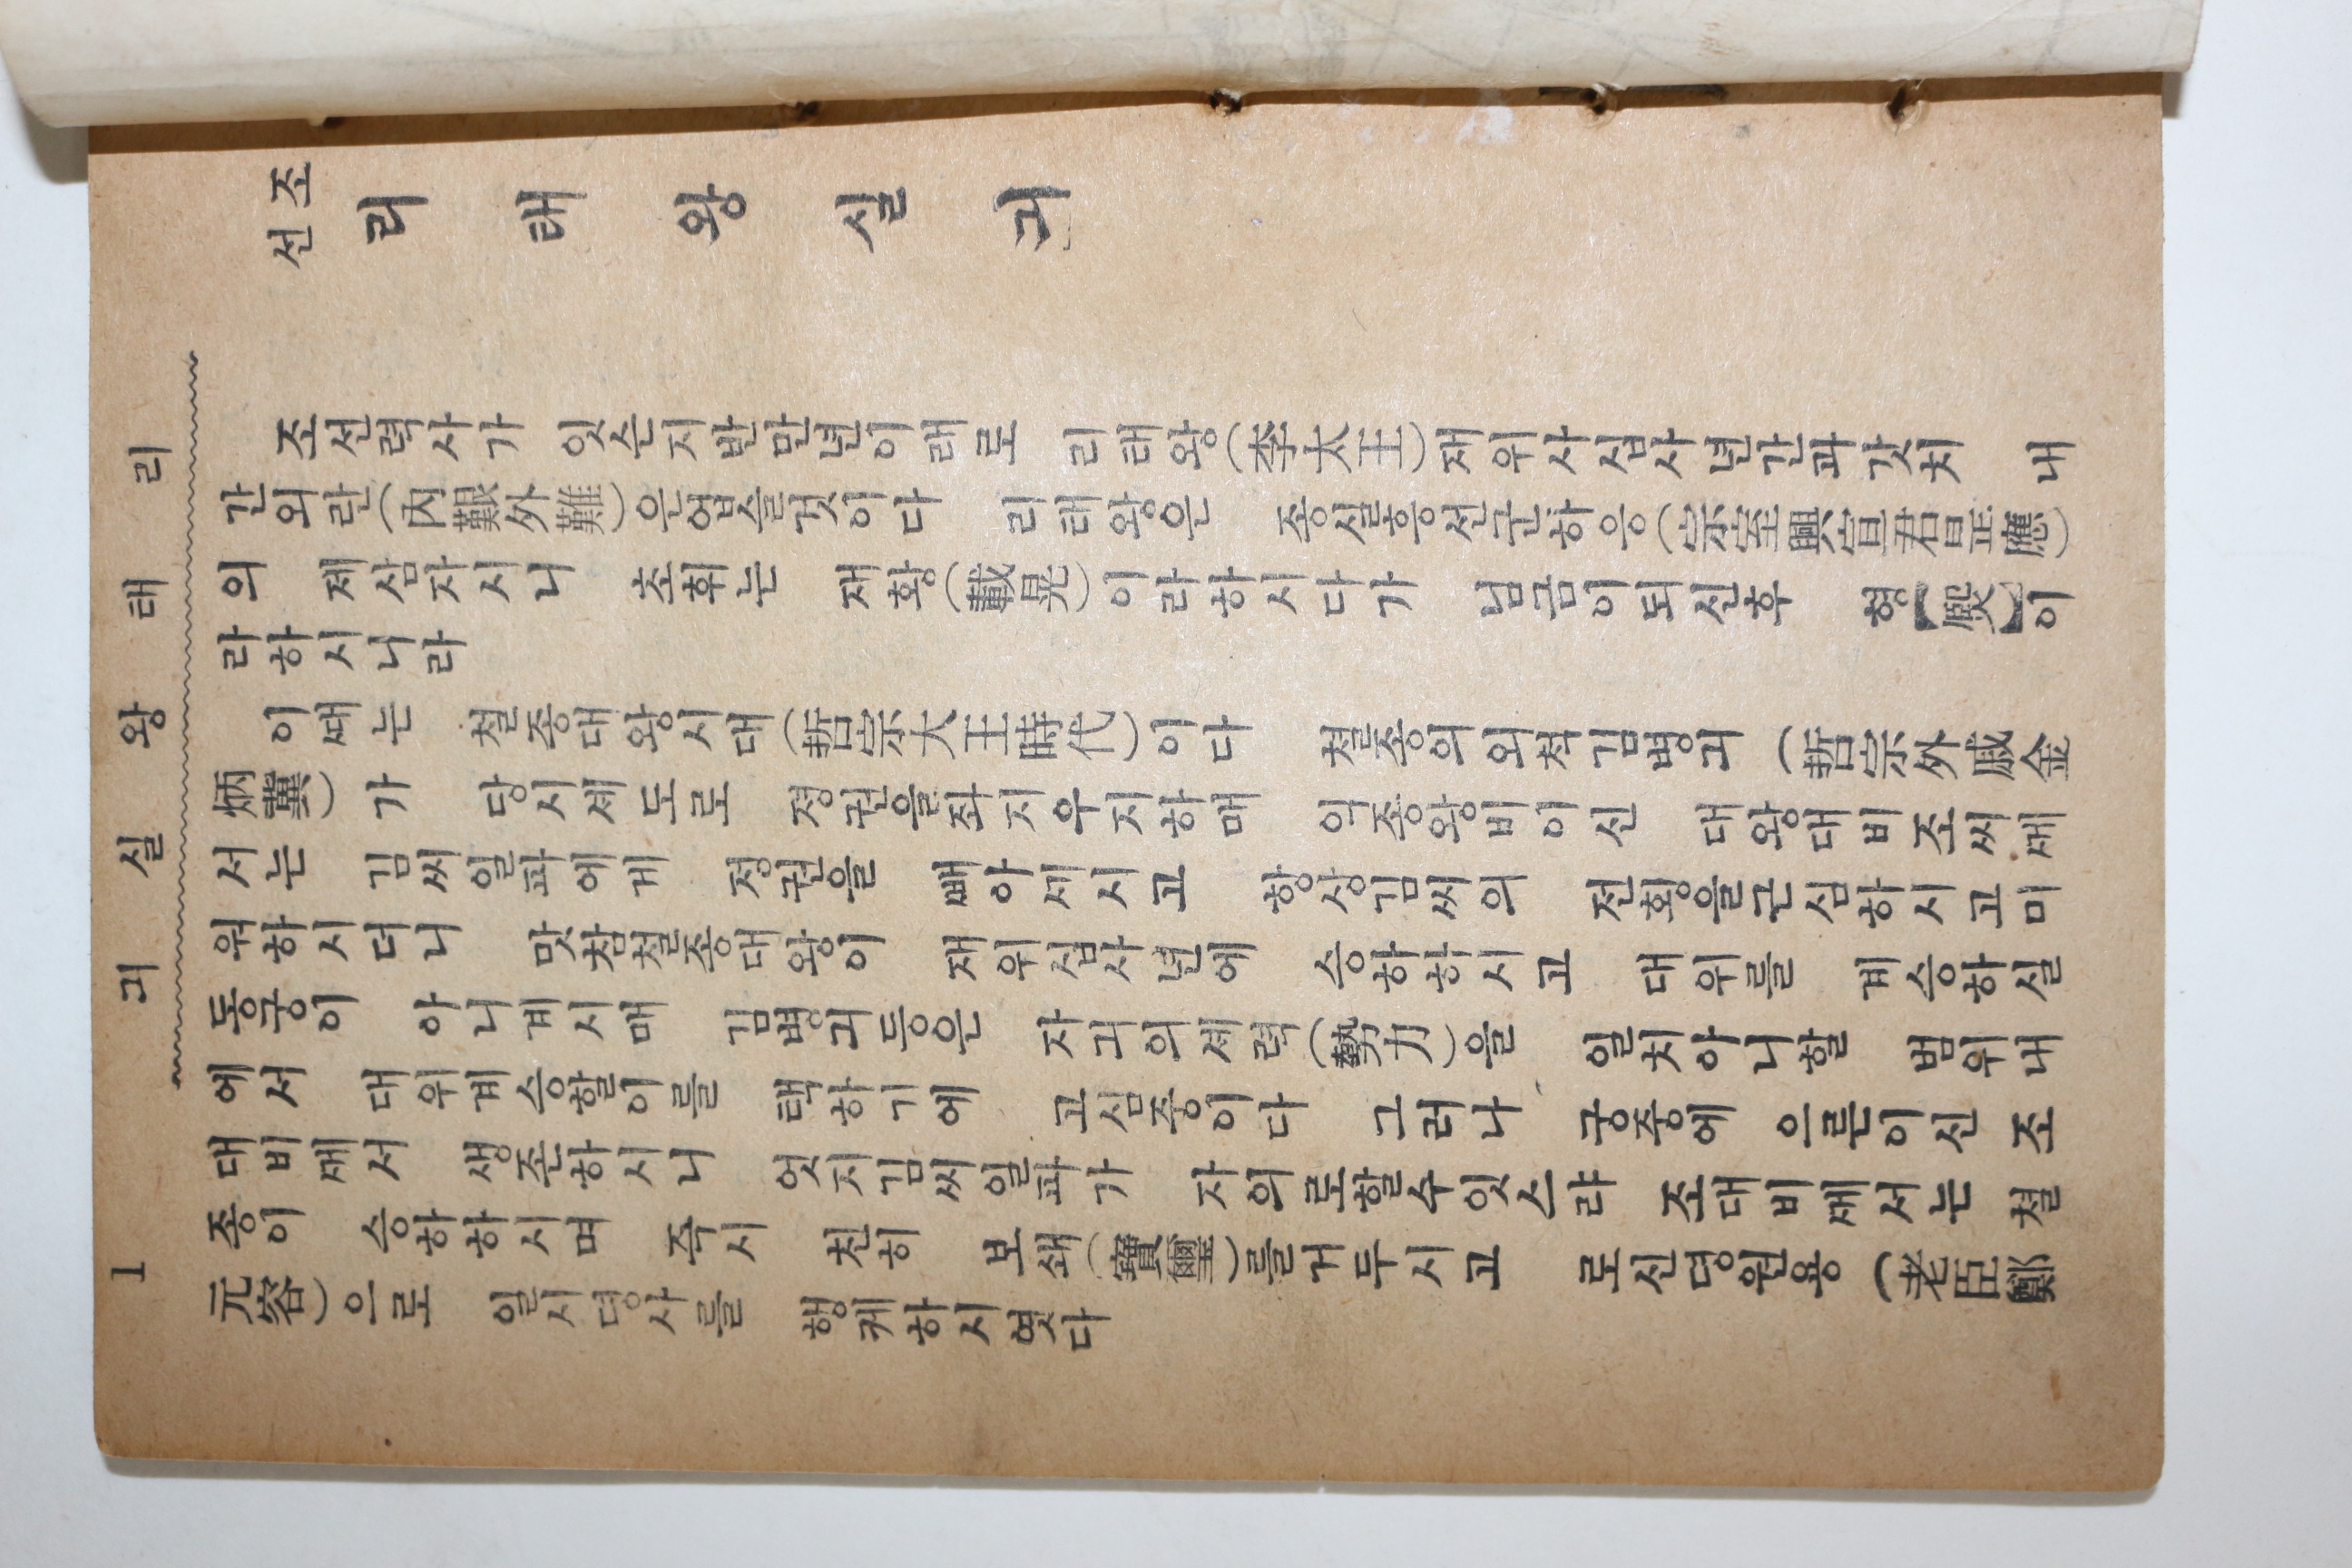 조선
리태왕실긔
리태왕실긔 1
조선력사가 잇슨지반만년이래로 리태왕(李太王)재위사십사년간과갓치 내
간외란(內艱外難)은업슬것이다 리태왕은 종실흥선군하응(宗室興宣君昰應)
의 제삼자시니 초휘는 재황(載晃)이라하시다가 님금이되신후 형【熙】이
라하시니라
이때는 철종대왕시대(哲宗大王時代)이다 철종의외척김병긔(哲宗外戚金
炳冀)가 당시세도로 정권을좌지우지하매 익종왕비이신 대왕대비조씨께
서는 김씨일파에게 정권을 빼아세시고 항상김씨의 전횡을근심하시고미
워하시더니 맛참철종대왕이 재위십사년에 승하하시고 대위를 계승하실
동궁이 아니계시매 김병긔등은 자긔의셰력(勢力)을 일치아니할 범위내
에서 대위계승할이를 택하기에 고심중이다 그러나 궁중에 으른이신 조
대비께서 생존하시니 엇지김씨일파가 자의로할수잇스랴 조대비께서는 철
종이 승하하시며 즉시 친히 보쇄(寶璽)를거두시고 로신뎡원용(老臣鄭
元容)으로 일시뎡사를 행케하시엿다